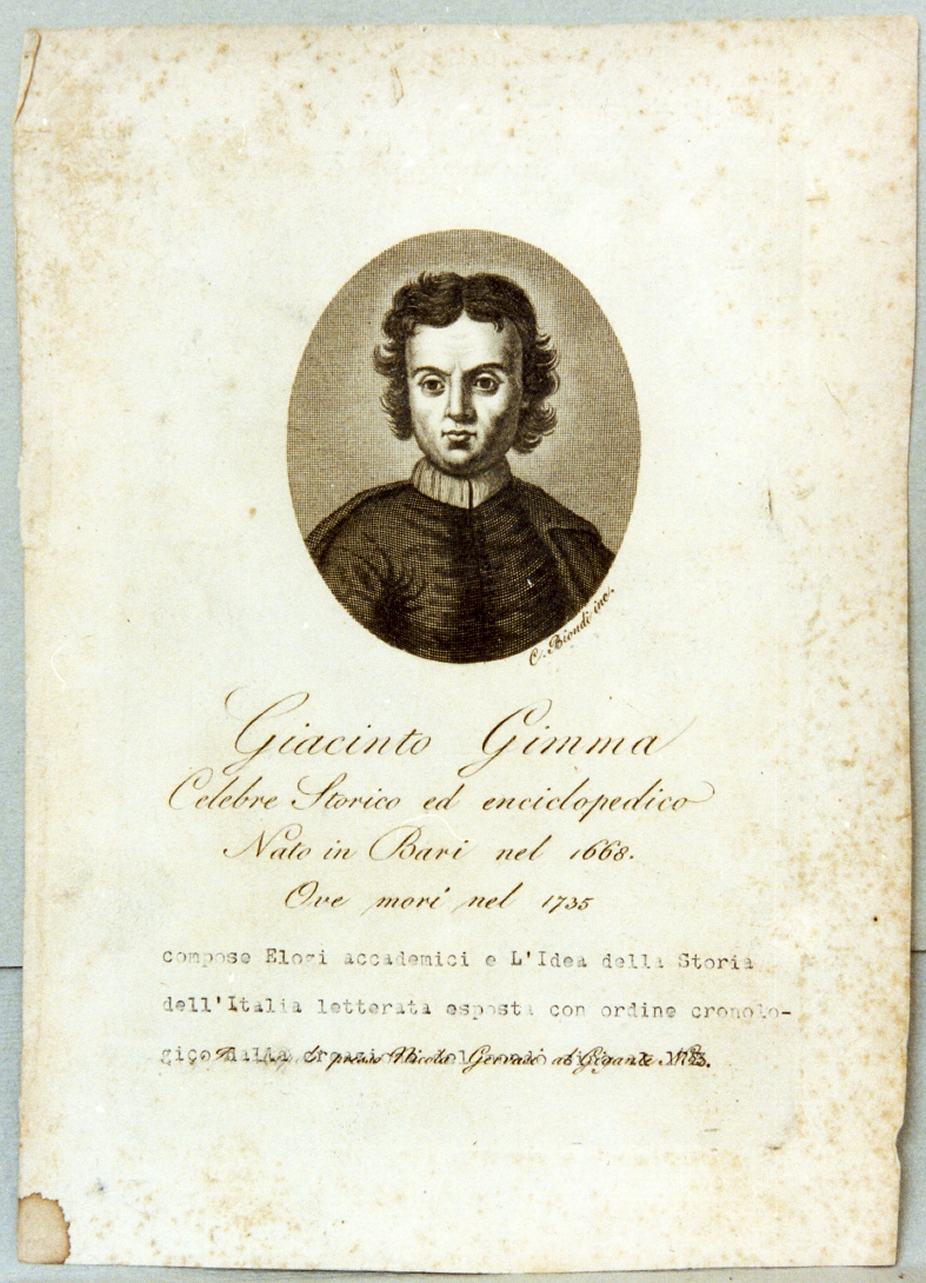 C. Biondi inc.
Giacinto Gimma
Celebre Storico ed enciclopedico
Nato in Bari nel 1668.
Ove morì nel 1735
compose Elogi accademici e L'Idea della Storia
dell'Italia letterata esposta con ordine cronolo-
gico dalla
presso Nicola Gervasi al Gigante